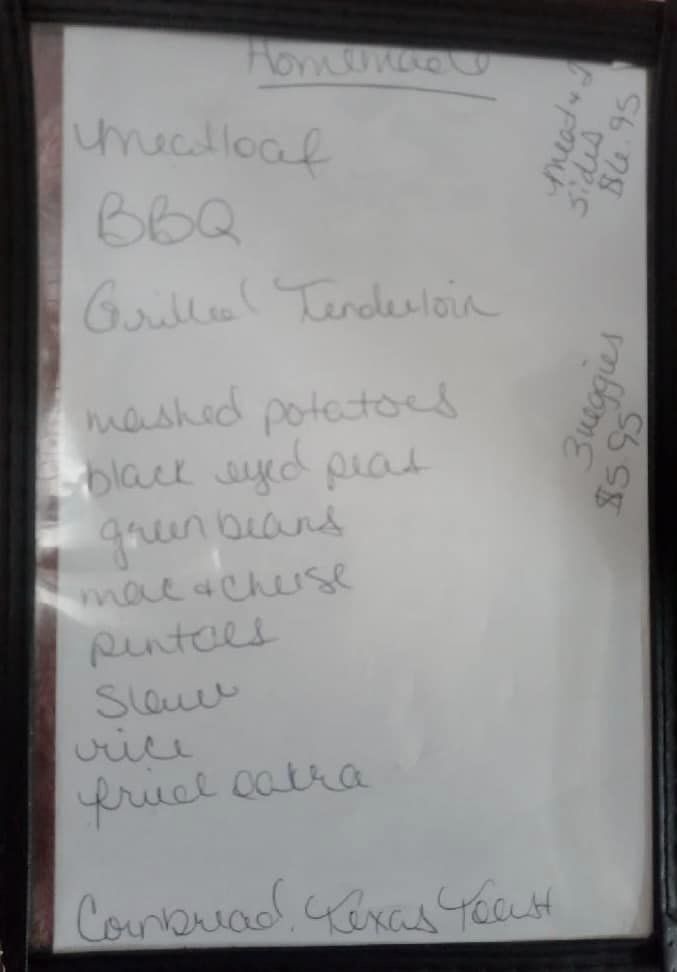 Homemade
Meatloaf
BBQ
Grilled Tenderloin
mashed potatoes
black eyed peas
green beans
mac & cheese
pintoes
Slaw
rice
fried oakra
Cornbread. Texas Toast
Meat & 2
sides
$6.95
3 veggies
$5.95